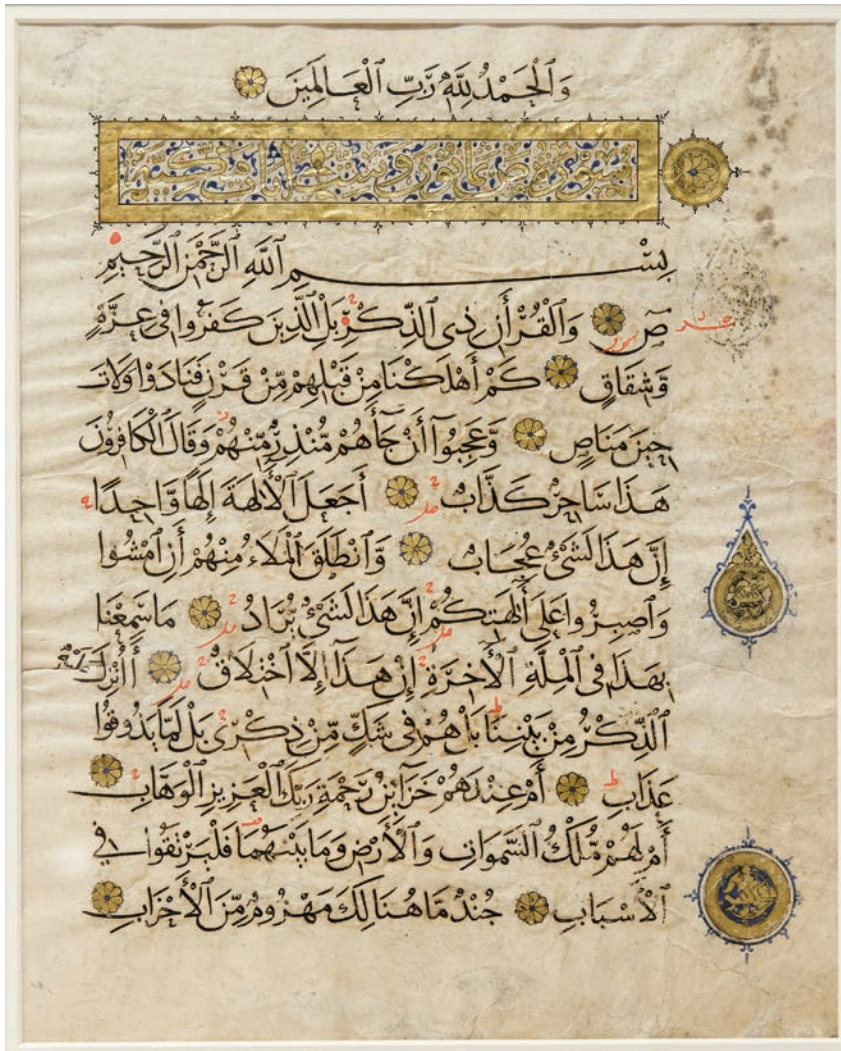 وَٱلْحَمْدُ لِلَّهِ رَبِّ ٱلْعَالَمِينَ
سورة ص ثمانون وست ايات مكية
بِسْمِ ٱللَّهِ ٱلرَّحْمٰنِ ٱلرَّحِيمِ
صٓ وَٱلْقُرْأٰنِ ذِى ٱلذِّكْرِ بَلِ ٱلَّذِينَ كَفَرُوا فِى عِزَّةٍ
وَّشِقَاقٍ كَمْ أَهْلَكْنَا مِنْ قَبْلِهِمْ مِّنْ قَرْنٍ فَنَادَوْا وَلَاتَ
حِينَ مَنَاصٍ وَّعَجِبُوٓا أَنْ جَآأَهُمْ مُّنْذِرٌ مِّنْهُمْ وَقَالَ ٱلْكَافِرُونَ
هَذَا سَاحِرٌ كَذَّابٌ أَجَعَلَ ٱلْأَلِهَةَ إِلَهًا وَّاحِدًا
إِنَّ هَذَا لَشَىْءٌ عُجَابٌ وَّٱنْطَلَقَ ٱلْمَلَاءُ مِنْهُمْ أَنِ ٱمْشُوا
وَٱصْبِرُوا عَلَى أٰلِهَتِكُمْ إِنَّ هَذَا لَشَىْءٌ يُّرَادُ مَا سَمِعْنَا
بِهَذَا فِى ٱلْمِلَّةِ ٱلْأٰخِرَةِ إِنْ هَذَآ إِلَّا ٱخْتِلَاقٌ أَأُنْزِلَ
ٱلذِّكْرُ مِنْ بَيْنِنَا بَلْ هُمْ فِى شَكٍّ مِّنْ ذِكْرِى بَلْ لَمَّا يَذُوقُوا
عَذَابِ أَمْ عِنْدَهُمْ خَزَآئِنُ رَحْمَةِ رَبِّكَ ٱلْعَزِيزِ ٱلْوَهَّابِ
أَمْ لَهُمْ مُّلْكُ ٱلسَّمٰوَاتِ وَٱلْأَرْضِ وَمَا بَيْنَهُمَا فَلْيَرْتَقُوا فِى
ٱلْأَسْبَابِ جُنْدٌ مَا هُنَالِكَ مَهْزُومٌ مِّنَ ٱلْأَحْزَابِ